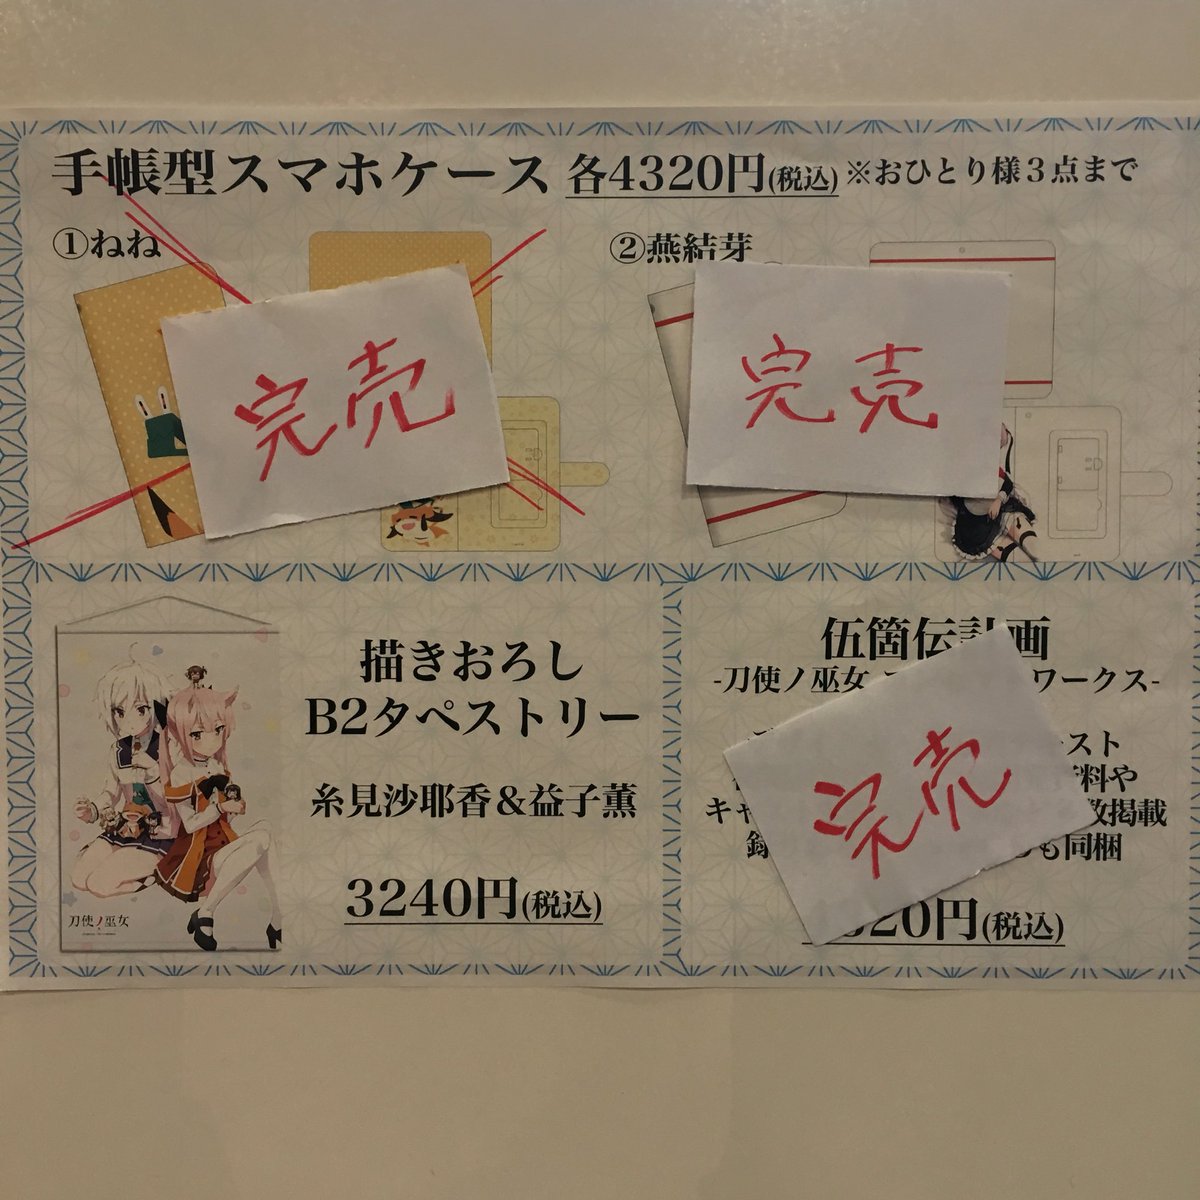 手帳型スマホケース 各4320円(税込) ※おひとり様3点まで
①ねね
②燕結芽
完売
完売
描きおろし
B2タペストリー
糸見沙耶香&益子薫
3240円(税込)
刀使ノ巫女
伍箇伝計画
-刀使ノ巫女 ワークス-
完売
スト
料や
キャ 数掲載
も同梱
20円(税込)